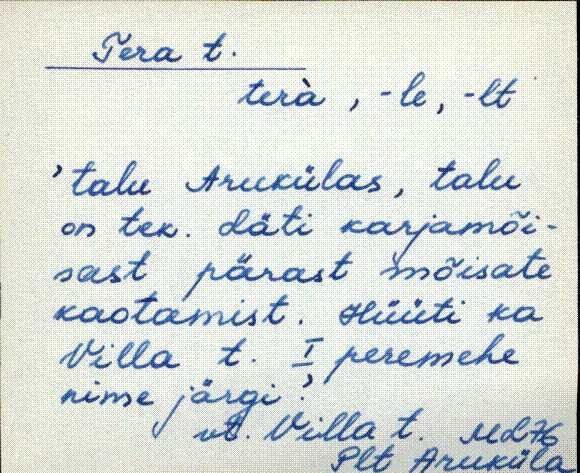 Tera t.
terà, -le, -lt
'talu Arukülas, talu
on tek. Läti karjamõi-
sast pärast mõisate
kaotamist. Hüüti ka
Villa t. I peremehe
nime järgi.'
vt. Villa t. ML76
Plt Aruküla